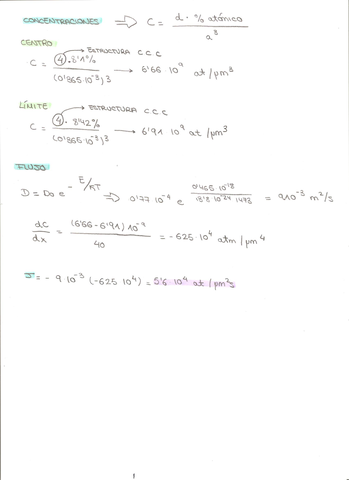 CONCENTRACIONES ⇒ C = d · % atómico / a³
CENTRO
→ ESTRUCTURA C C C
C = 4 · 8'1% / (0'365·10⁻³)³ → 6'66 10⁹ at/μm³
LÍMITE
→ ESTRUCTURA C C C
C = 4 · 8'42% / (0'365·10⁻³)³ → 6'91 10⁹ at/μm³
FLUJO
D = D₀ e^(-E/KT) ⇒ 0'77 10⁻⁴ e = 9·10⁻³ m²/s
dC/dx = (6'66 - 6'91) 10⁻⁹ / 40 = -625 10⁴ atm/μm⁴
J = - 9·10⁻³ (-625·10⁴) = 5'6 10⁴ at/μm²s